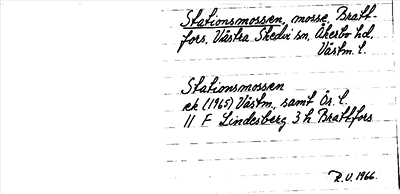 Stationsmossen, mosse, Bratt-
fors, Västra Skedvi sn, Åkerbo hd,
Västm. l.
Stationsmossen
ek (1965) Västm. samt Ös. l.
11 F Lindesberg 3 h Brattfors
R.U. 1966.